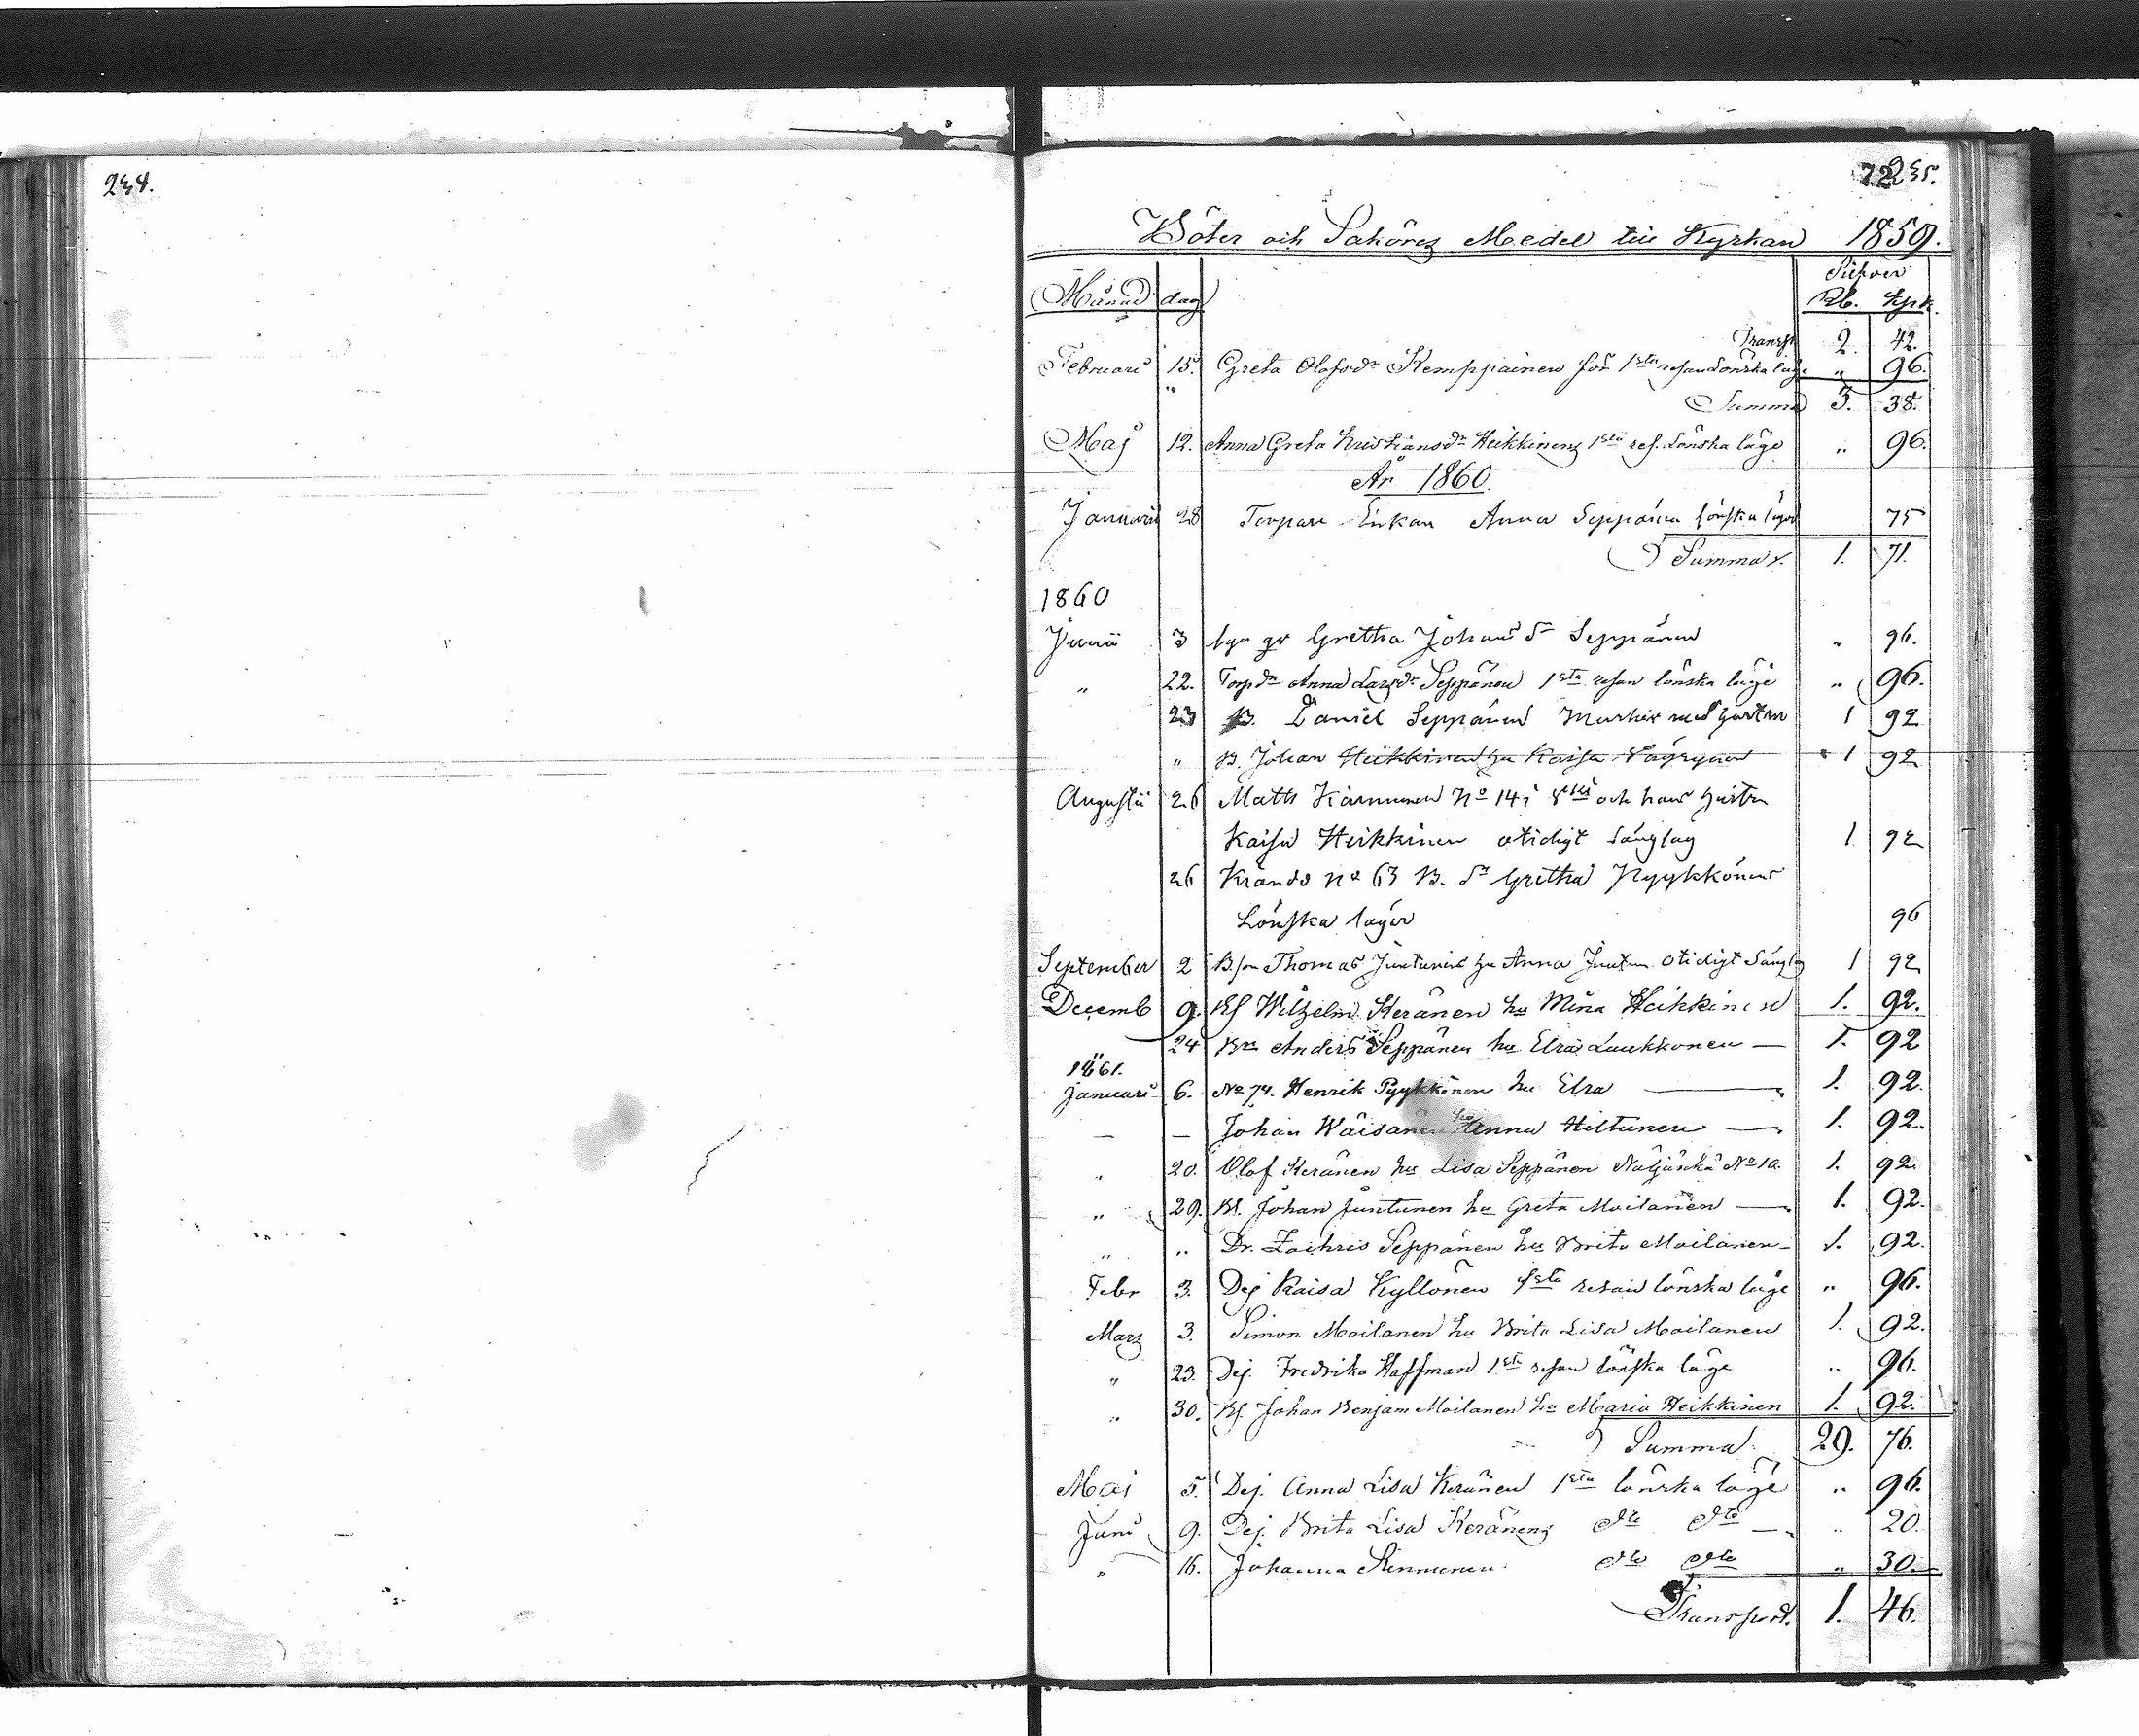 234.
72 235.
Böter och Saköres Medel till Kyrkan 1859.
Silfver
Månad dag Rb. Kpk.
Transp 2. 42.
Februari 15. Greta Olofsdr Kemppainen för 1sta resan Lönska läge " 96.
Summa 3. 38.
Maj 12. Anna Greta Kristiansdr Heikkinen 1sta res. Lönska läge " 96.
År 1860.
Januari 28 Torpare Enkan Anna Seppänen lönska läger 75
Summa 1. 71.
1860
Junii 3 Gretha Johans dr Seppänen " 96.
" 22. Torpdr Anna Larsdr Seppänen 1sta resan lönska läge " 96.
23 B. Daniel Seppänen med hustru 1 92
" B. Johan Heikkinen hu Kaisa 1 92
Augustii 26 Matts Karnunen No 14 i och hans hustru
Kaisa Heikkinen otidigt sänglag 1 92
26 Kiando No 63 B. dr Gretha Pyykkönen
Lönska läger 96
September 2 B.son Thomas Juntunen hu Anna Juntun otidigt Sänglag 1 92
Decemb 9. Wilhelm Keränen hu Mina Heikkinen 1. 92.
24 Anders Seppänen hu Elsa Laukkonen — 1. 92
1861.
Januari 6. No 74. Henrik Pyykkönen hu Elsa — 1. 92.
— — Johan Wäisänen hu Anna Hiltunen — 1. 92.
" 20. Olof Keränen hu Lisa Seppänen Näljänkä No 10. 1. 92.
" 29. Johan Juntunen hu Greta Moilanen — 1. 92.
" " Dr. Zachris Seppänen hu Brita Moilanen — 1. 92.
Febr 3. Dej Kaisa Kyllönen 1sta resan lönska läge " 96.
Mars 3. Simon Moilanen hu Brita Lisa Moilanen 1. 92.
" 23. Dej. Fredrika Haffman 1sta resan lönska läge " 96.
" 30. Johan Benjam Moilanen hu Maria Heikkinen 1. 92.
Summa 29. 76.
Maj 5. Dej. Anna Lisa Keränen 1sta lönska läge " 96.
Juni 9. Dej. Brita Lisa Keränen dto dto — " 20.
" 16. Johanna Kinnunen dto dto " 30.
Transport. 1. 46.